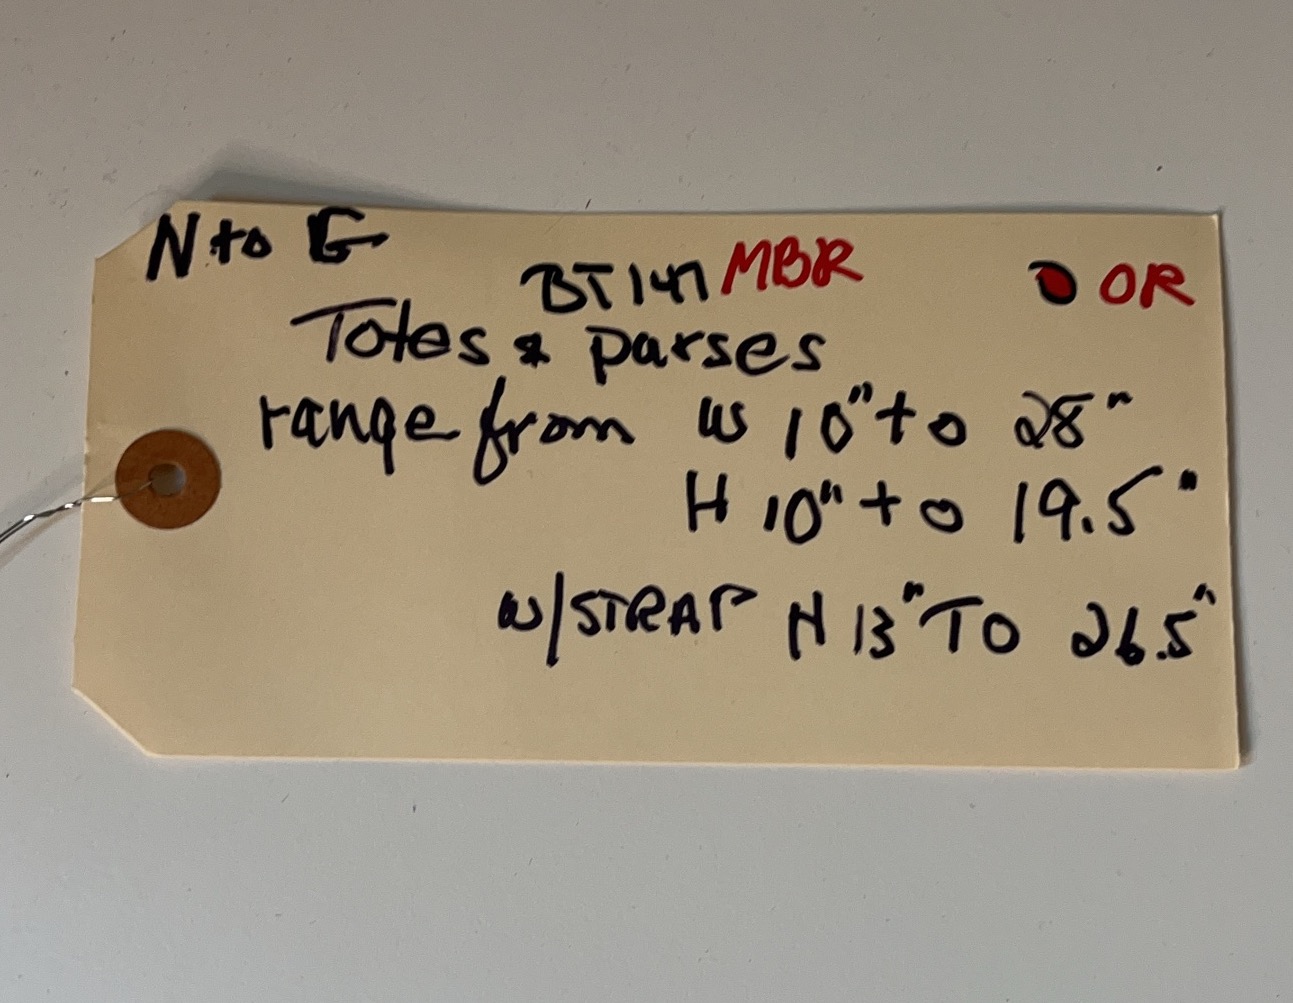 N to G
BT147 MBR OR
Totes & purses
range from W 10" to 28"
H 10" to 19.5"
W/STRAP H 13" TO 26.5"